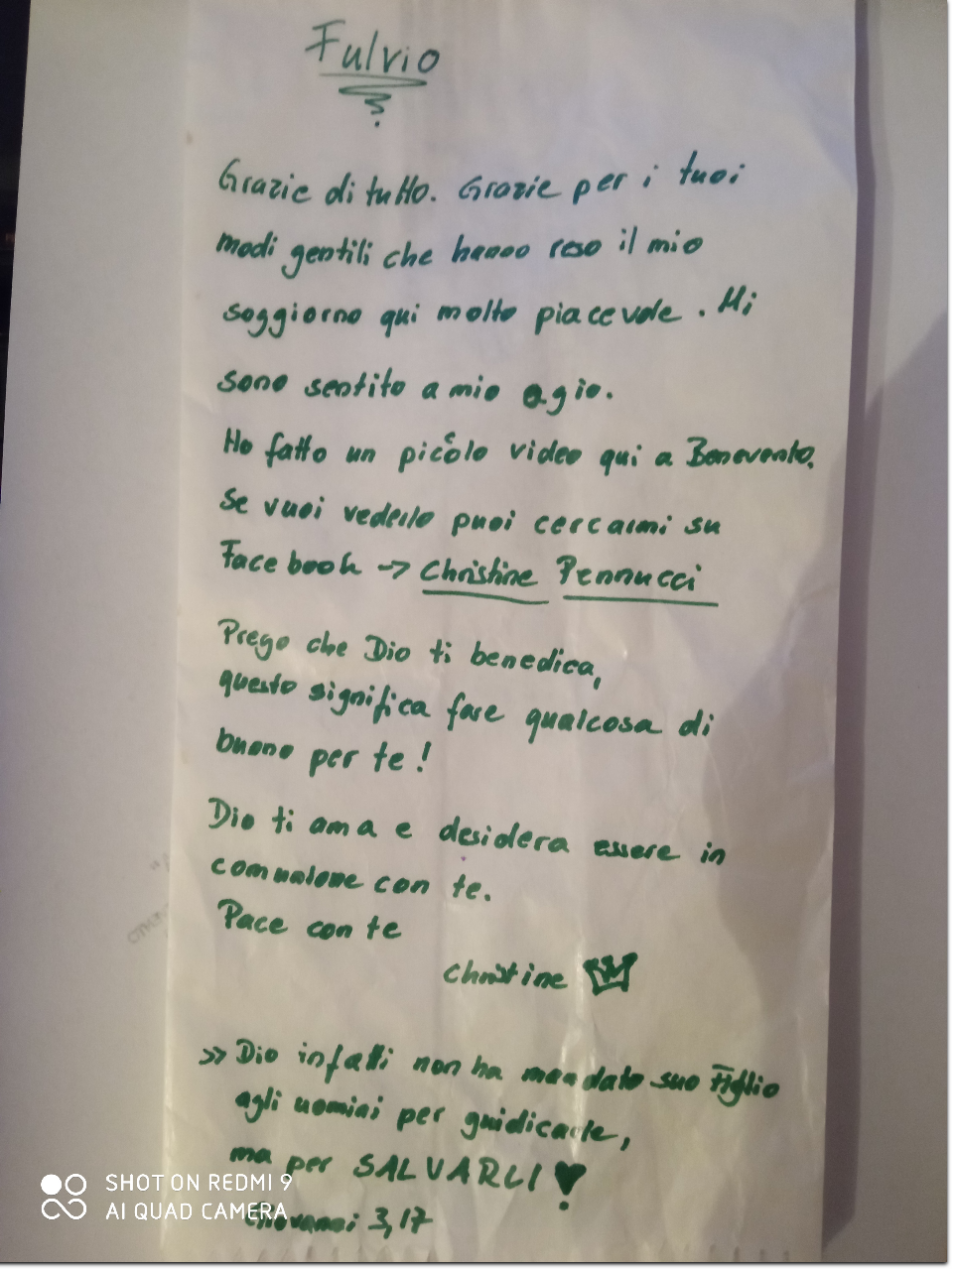 Fulvio
Grazie di tutto. Grazie per i tuoi
modi gentili che hanno reso il mio
soggiorno qui molto piacevole. Mi
sono sentito a mio agio.
Ho fatto un piccolo video qui a Benevento.
Se vuoi vederlo puoi cercarmi su
Facebook -> Christine Pennucci
Prego che Dio ti benedica,
questo significa fare qualcosa di
buono per te!
Dio ti ama e desidera essere in
con te.
Pace con te
Christine
>> Dio infatti non ha mandato suo Figlio
agli uomini per
ma per SALVARLI
Giovanni 3,17
SHOT ON REDMI 9
AI QUAD CAMERA